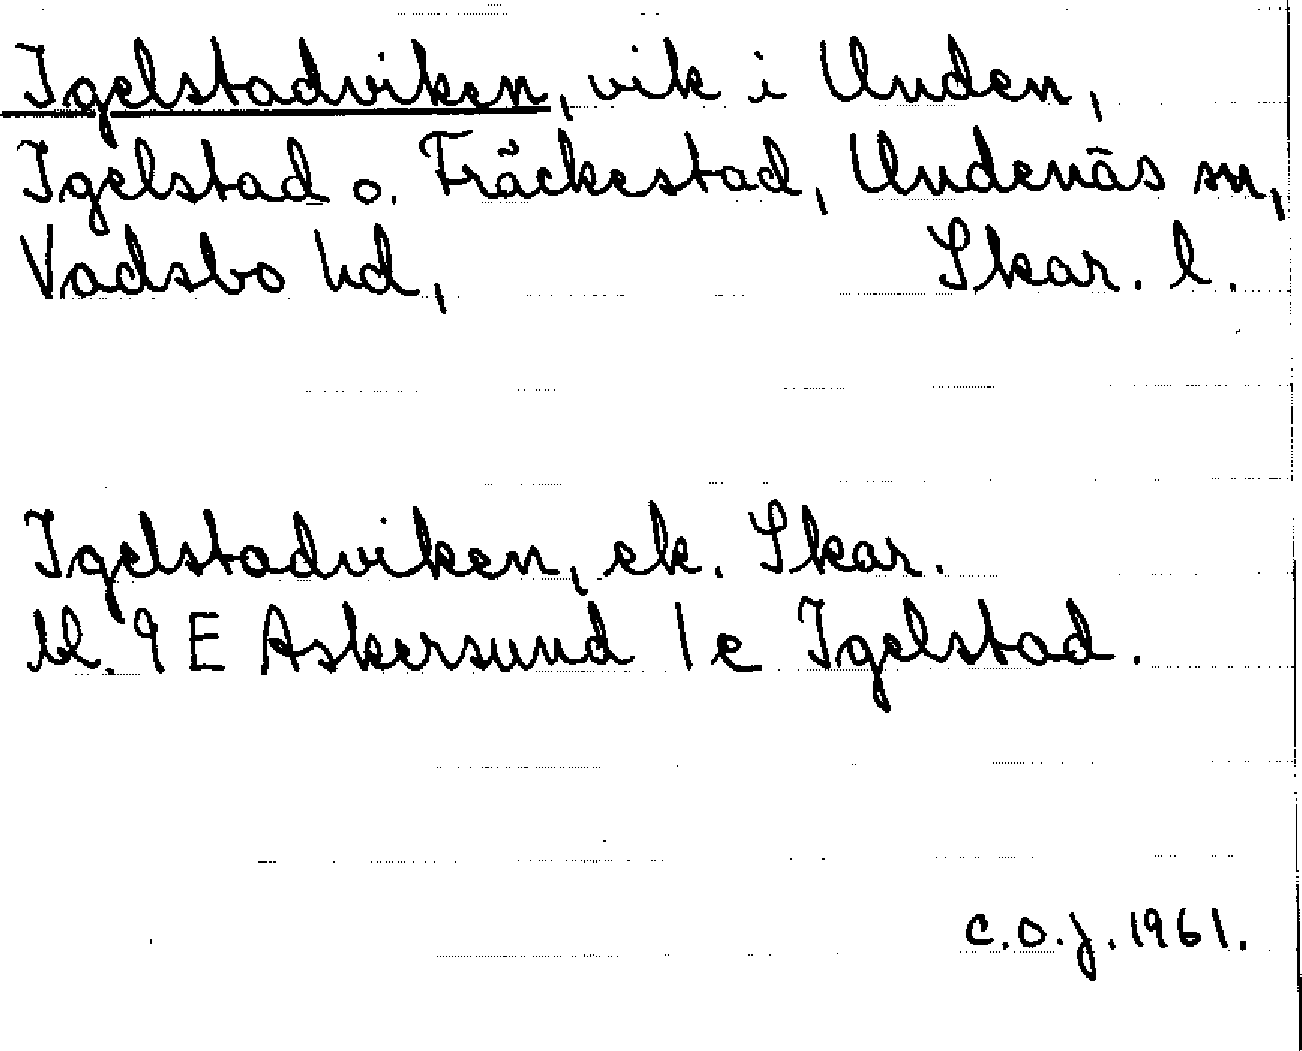 Igelstadviken, vik i Unden,
Igelstad o. Fräckestad, Undenäs sn,
Vadsbo hd, Skar. l.
Igelstadviken, ek. Skar.
bl. 9 E Askersund 1 c Igelstad.
C.O.J. 1961.